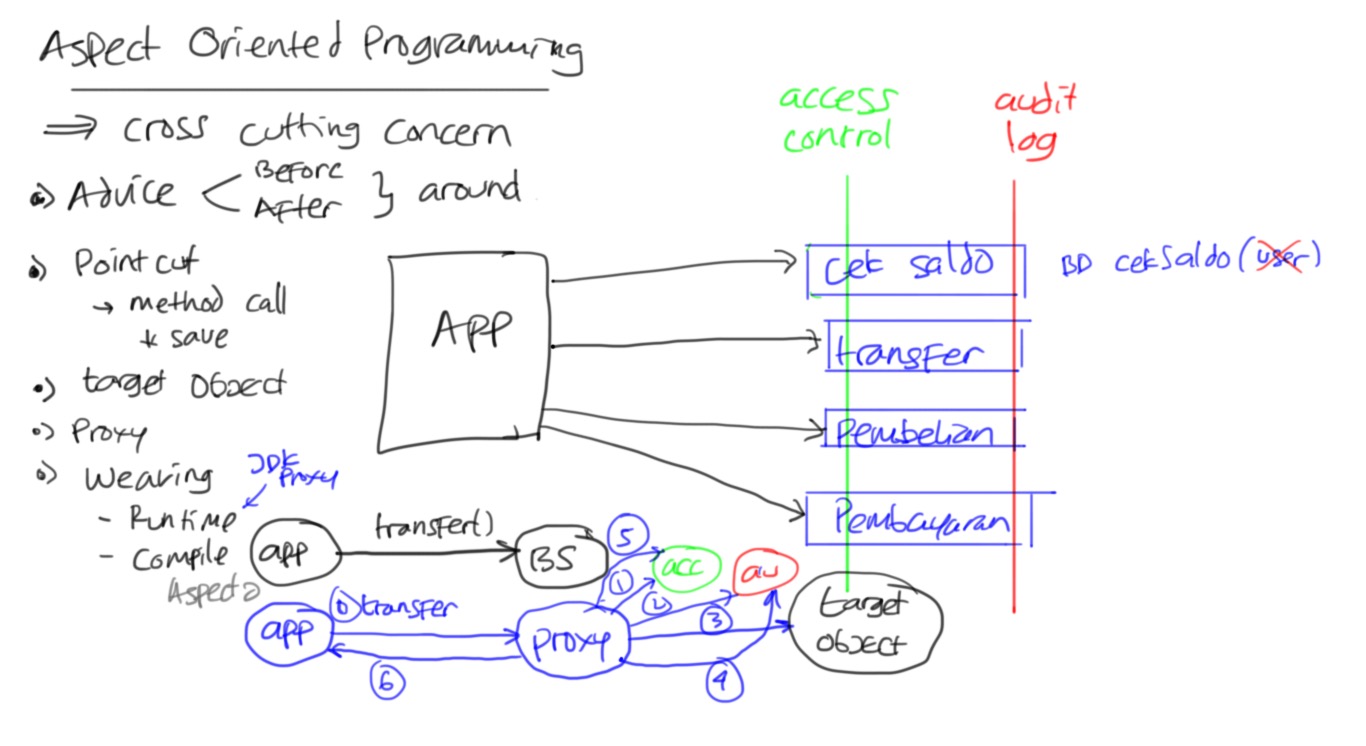 Aspect Oriented Programming
⇒ cross cutting concern
•) Advice < Before
After } around
•) Pointcut
→ method call
↳ save
•) target object
•) Proxy
•) Weaving
- Runtime
JDK
Proxy
- Compile
AspectJ
access
control
audit
log
APP
cek saldo
BD cekSaldo(user)
transfer
Pembelian
Pembayaran
app
transfer()
BS
app
0 transfer
Proxy
5
1
2
3
4
6
acc
au
target
object